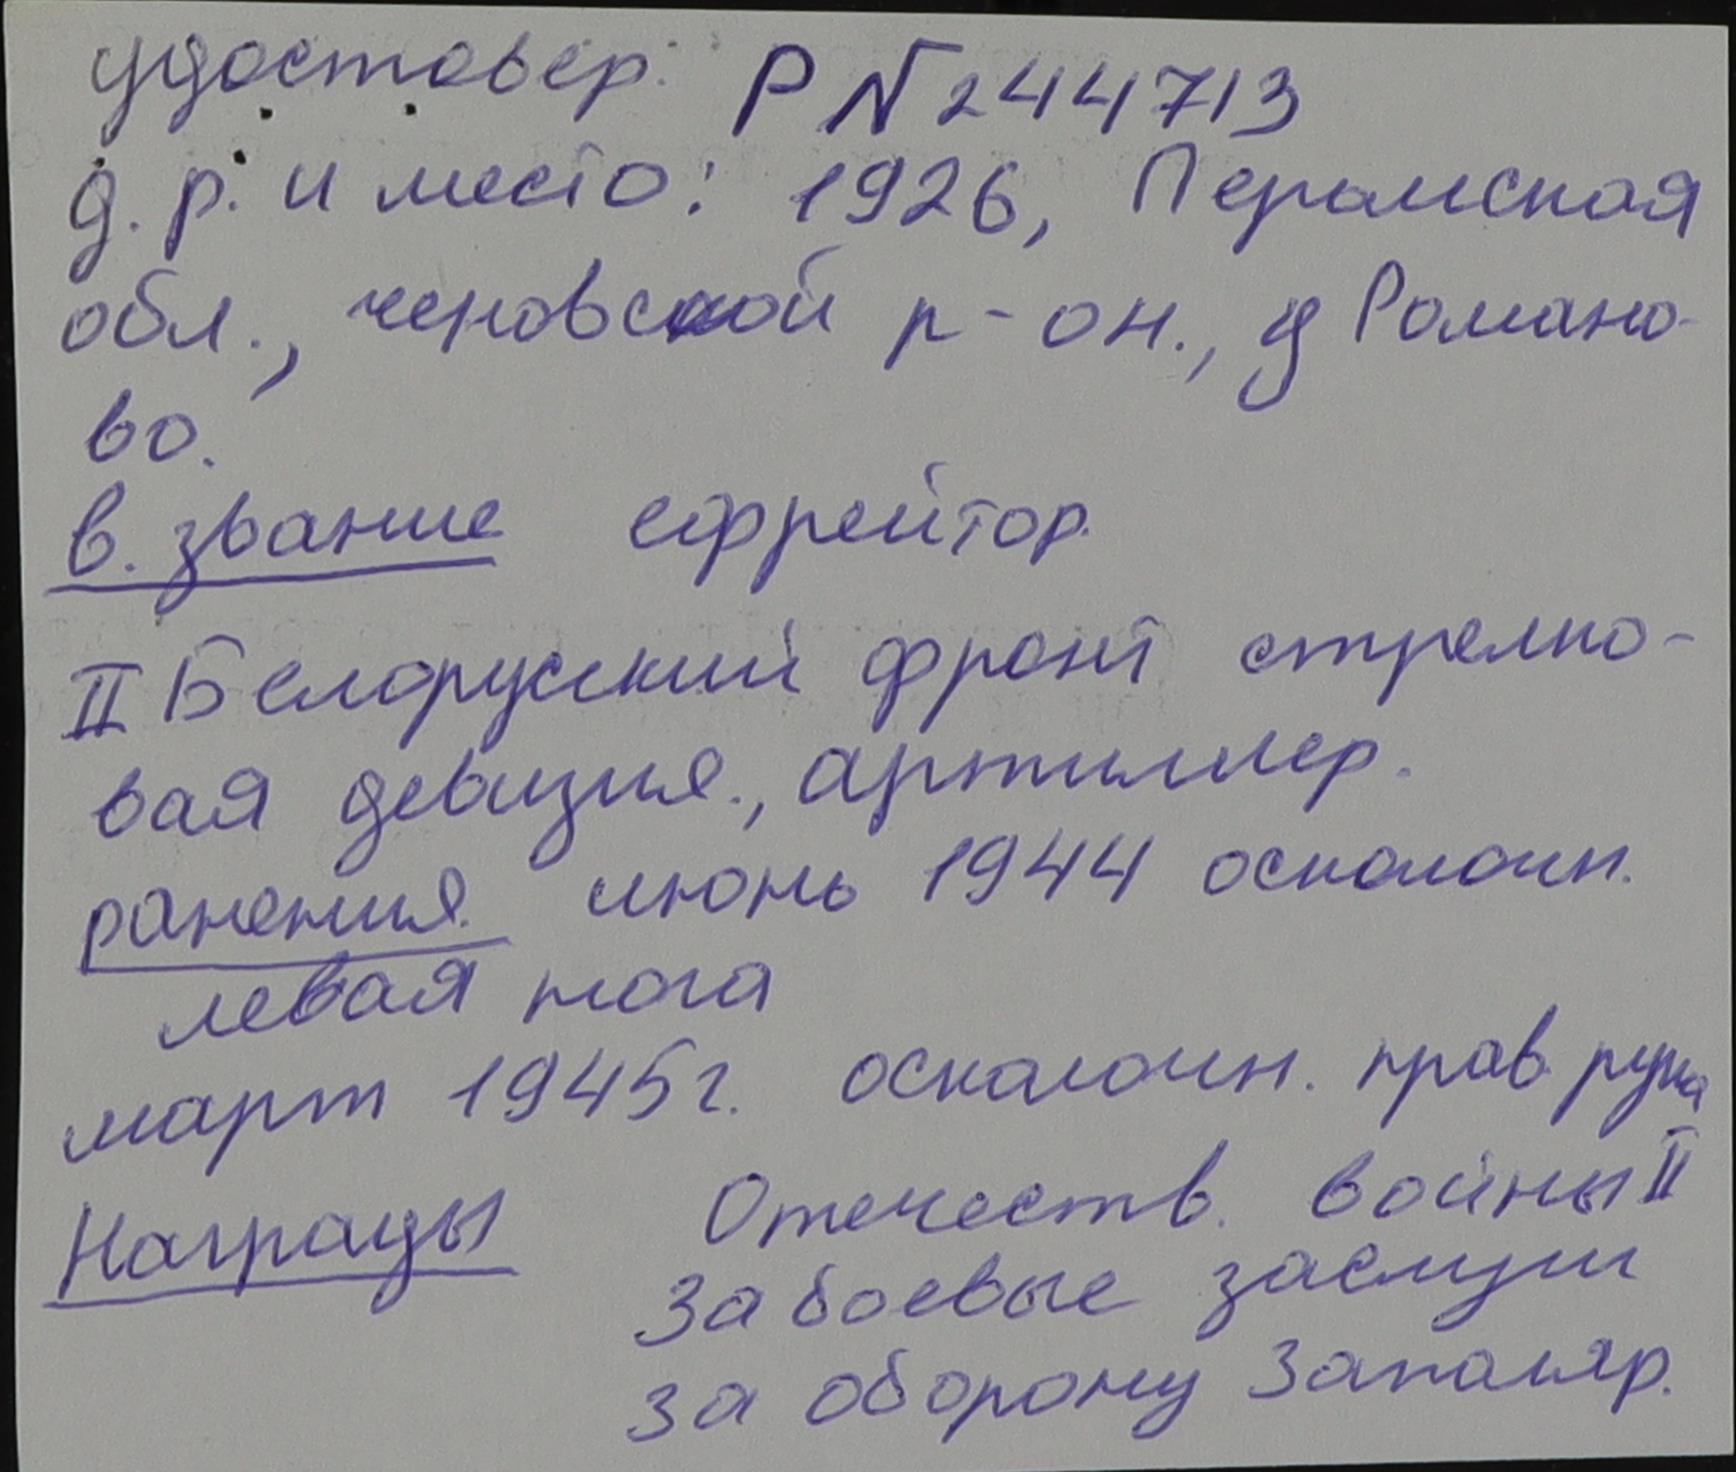 удостовер. Р № 244713
д. р. и место: 1926, Перамская
обл., ченовской р-он., д Романо-
во.
в. звание ефрейтор.
II Белорусский фронт стрелко-
вая девизия., артиллер.
ранения. июнь 1944 осколочн.
левая нога
март 1945 г. осколочн. прав. рука
Награды Отечеств. войны II
За боевые заслуги
за оборону Заполяр.